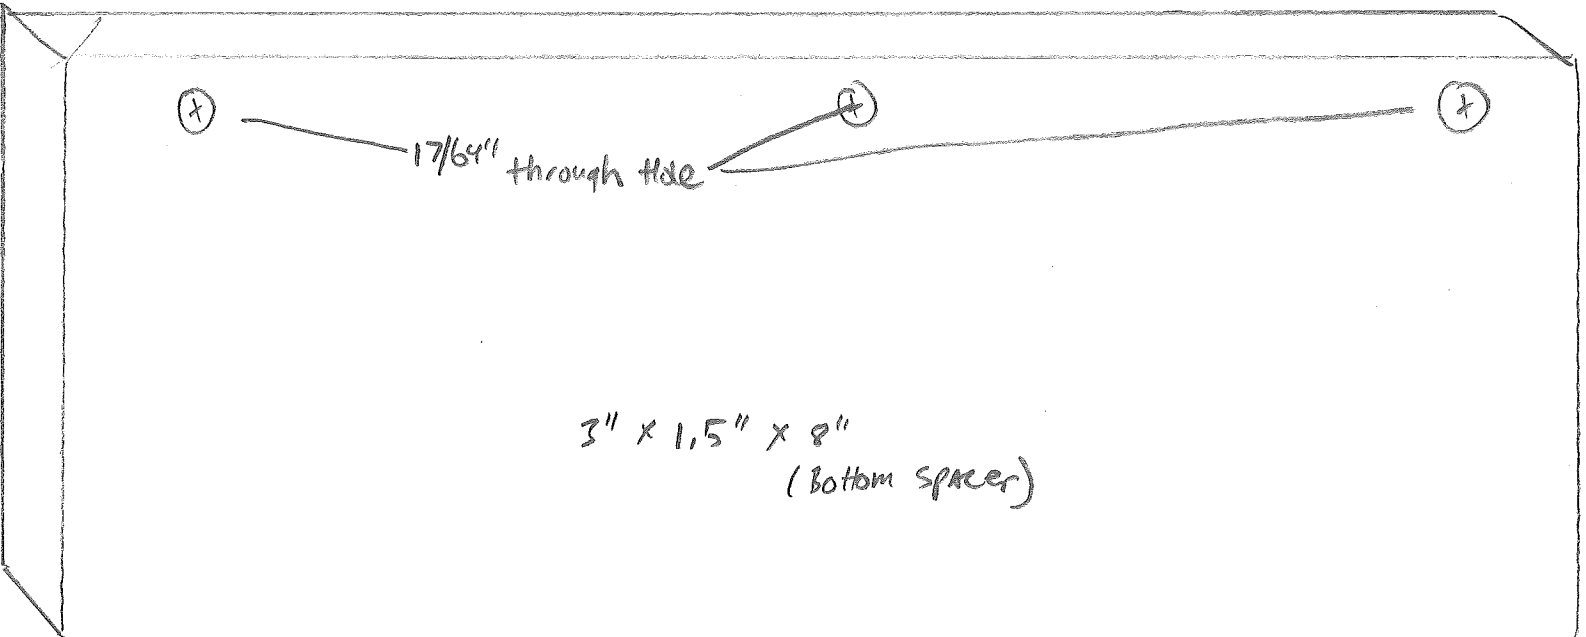 17/64" through Hole
3" x 1.5" x 8"
(Bottom Spacer)